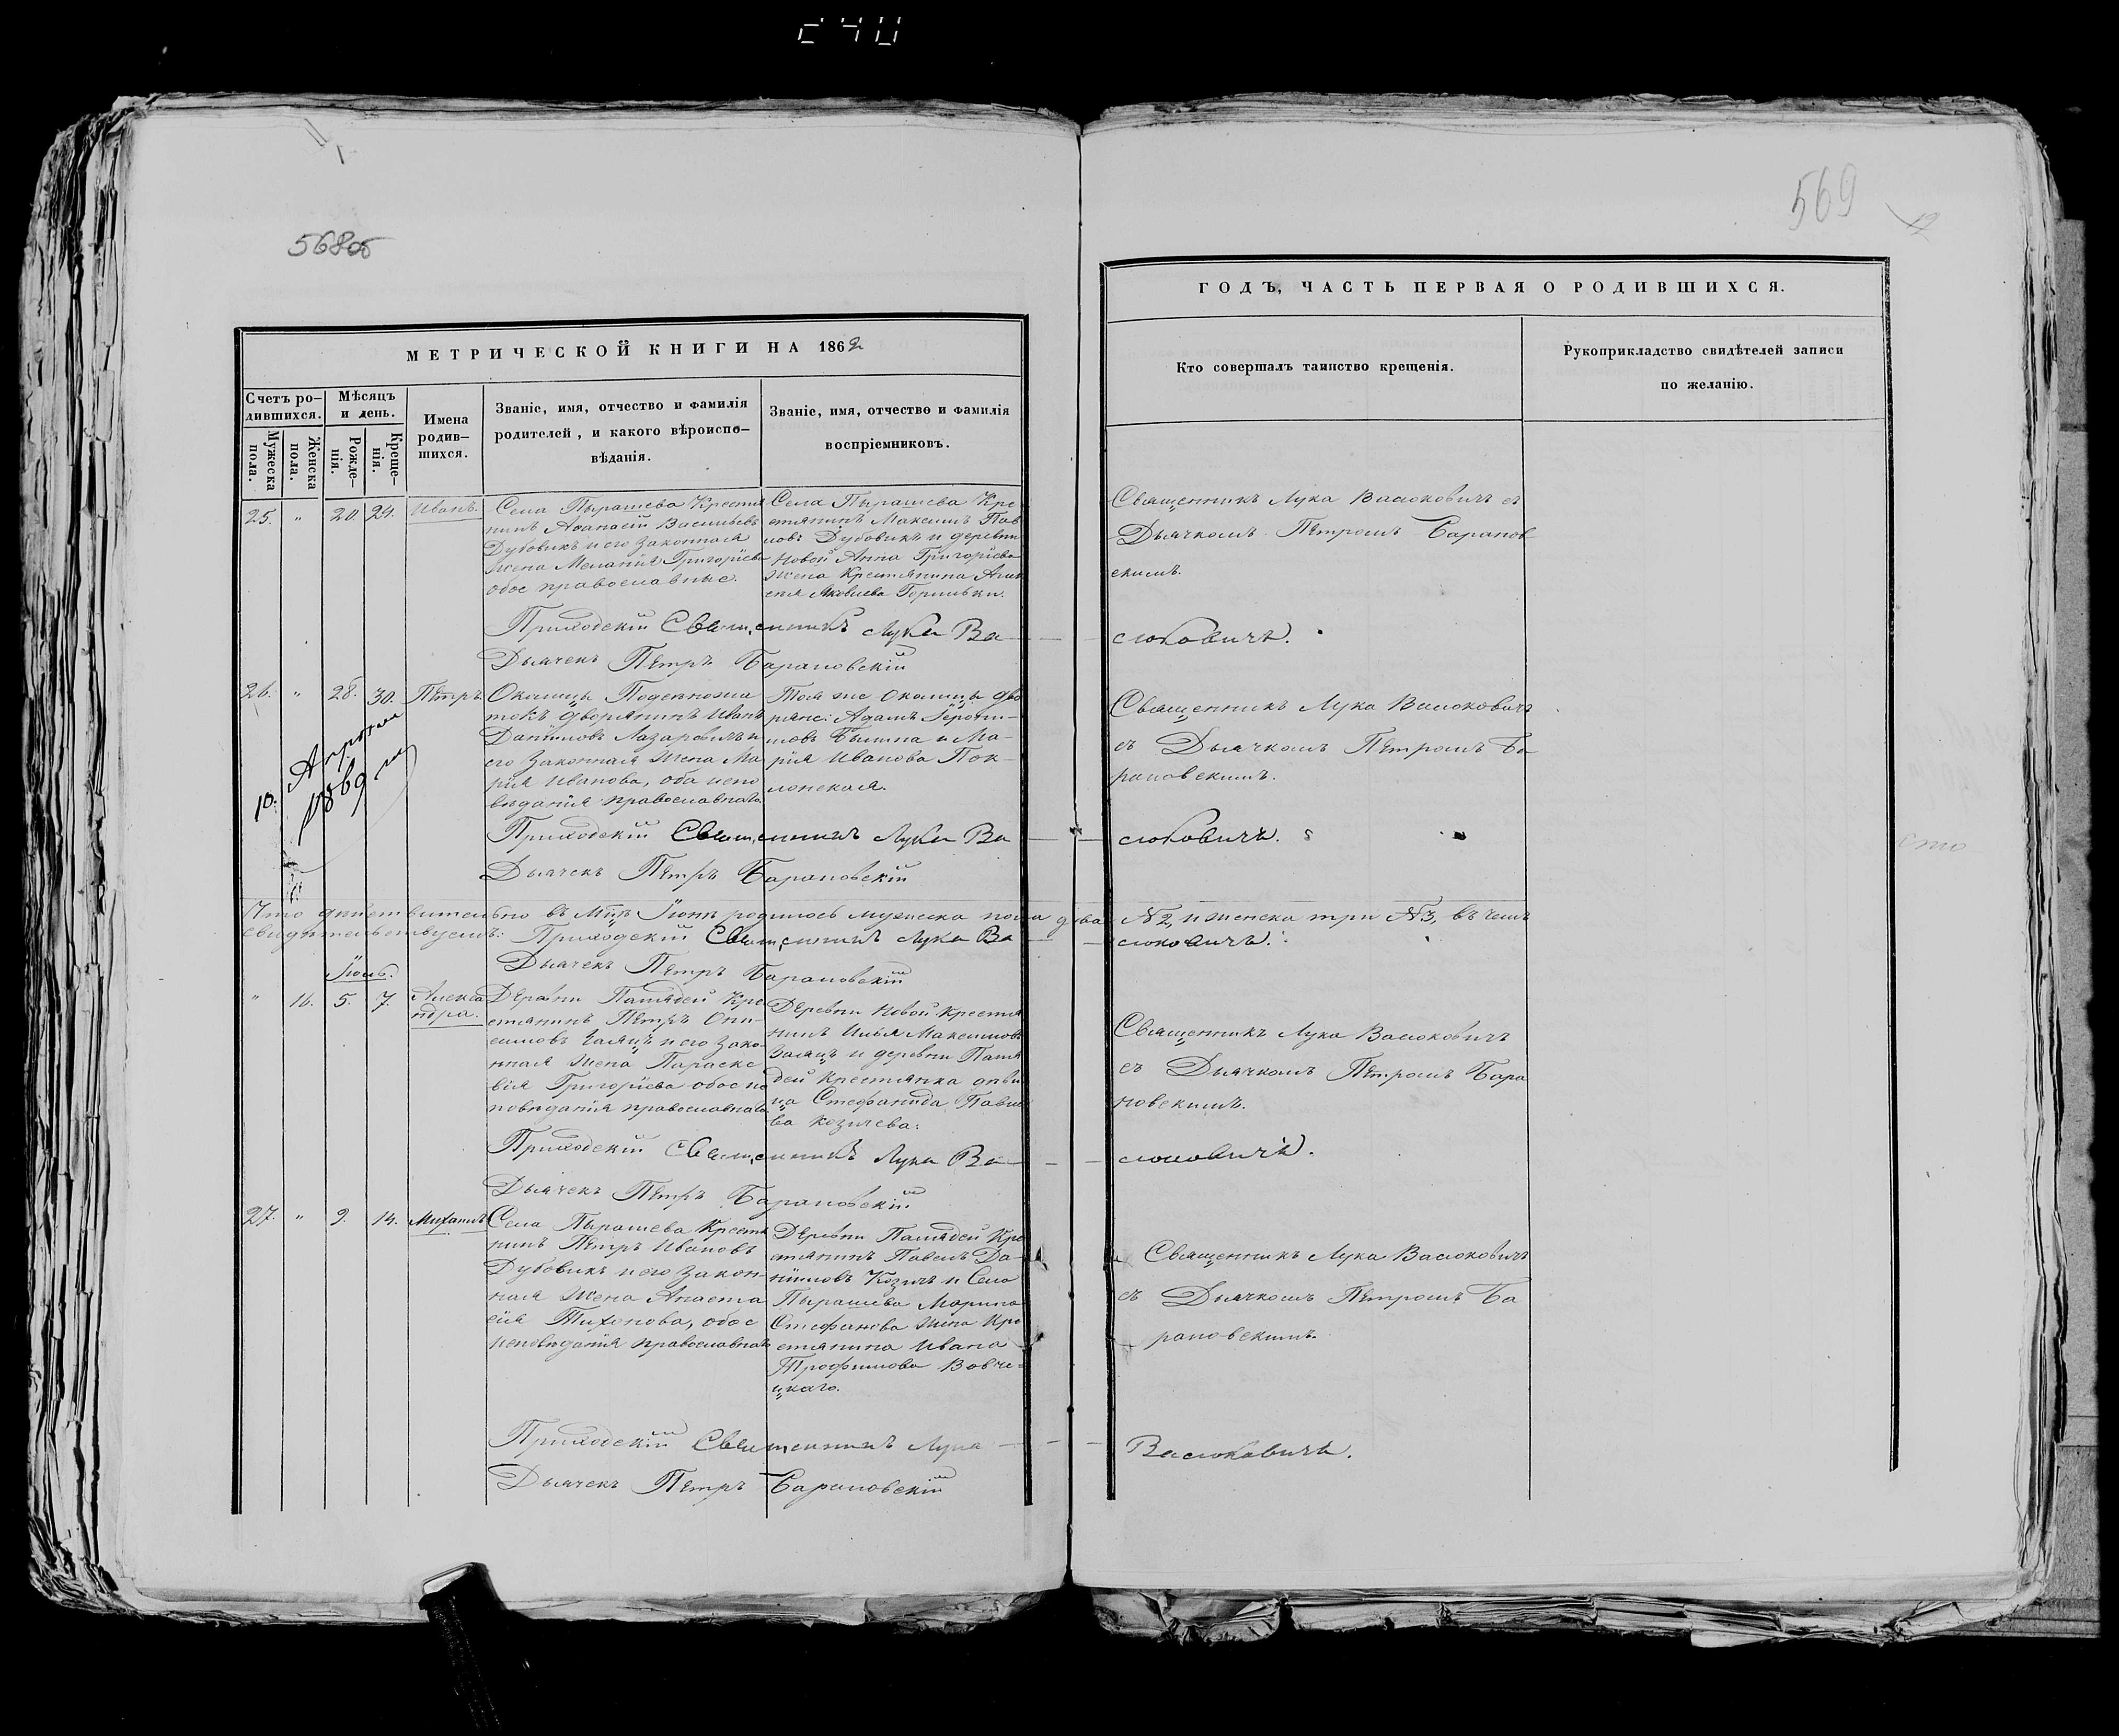 568об
569
12
МЕТРИЧЕСКОЙ КНИГИ НА 1862
ГОДЪ, ЧАСТЬ ПЕРВАЯ О РОДИВШИХСЯ.
Счетъ ро-
дившихся.
Мужеска
пола.
Женска
пола.
Мѣсяцъ
и день.
Рожде-
нія.
Креще-
нія.
Имена
родив-
шихся.
Званіе, имя, отчество и фамилія
родителей, и какого вѣроиспо-
вѣданія.
Званіе, имя, отчество и фамилія
воспріемниковъ.
Кто совершалъ таинство крещенія.
Рукоприкладство свидѣтелей записи
по желанію.
25. " 20. 24. Иванъ.
Села Пырашева Крестья
нинъ Аѳанасій Васильевъ
Дубовикъ и его законная
жена Меланія Григоріева
обое православные.
Села Пырашева Кре
стянинъ Максимъ Пав
ловъ Дубовикъ и деревни
Новой Анна Григоріева
жена Крестянина
Яковлева
Священникъ Лука Васюковичъ съ
Дьячкомъ Пётромъ Баранов
скимъ.
Приходскій Священникъ Лука Ва-
сюковичъ.
Дьячекъ Пётръ Барановскій
26. " 28. 30. Пётръ.
Околицы
дворянинъ Иванъ
Даніиловъ Лазаревичъ и
его законная жена Ма
рія Иванова, оба испо
вѣданія православнаго.
Тоя же Околицы дво
ряне: Адамъ
и Ма-
рія Иванова
Священникъ Лука Васюковичъ
съ Дьячкомъ Пётромъ Ба-
рановскимъ.
10. Апрѣля
1869
Приходскій Священникъ Лука Ва
сюковичъ.
Дьячекъ Пётръ Барановскій
Что дѣйствительно въ Мцѣ Іюнѣ родилось мужеска пола два №2, и женска три №3, въ чемъ
свидѣтельствуемъ: Приходскій Священникъ Лука Ва
сюковичъ.
Дьячекъ Пётръ Барановскій
Іюль.
" 16. 5. 7. Алекса
ндра.
Деревни Памядей Кре
стянинъ Пётръ Они-
симовъ Заяцъ и его зако-
нная жена Параске
вія Григоріева обое ис
повѣданія православнаго.
Деревни Новой крестья
нинъ Илья Максимовъ
Заяцъ и деревни Памя
дей Крестянка дѣви
ца Стефанида Павло
ва Козичева.
Священникъ Лука Васюковичъ
съ Дьячкомъ Пётромъ Бара
новскимъ.
Приходскій Священникъ Лука Ва
сюковичъ.
Дьячекъ Пётръ Барановскій
27. " 9. 14. Михаилъ
Села Пырашева Крестья
нинъ Пётръ Ивановъ
Дубовикъ и его закон-
ная жена Анаста
сія Тихонова, обое
исповѣданія православнаго
Деревни Памядей Кре
стянинъ Павелъ Да-
ніиловъ Козичъ и Села
Пырашева Марина
Стефанова жена Кре
стянина Ивана
Трофимова Вовче-
цкаго.
Священникъ Лука Васюковичъ
съ Дьячкомъ Пётромъ Ба
рановскимъ.
Приходскій Священникъ Лука
Васюковичъ.
Дьячекъ Пётръ Барановскій